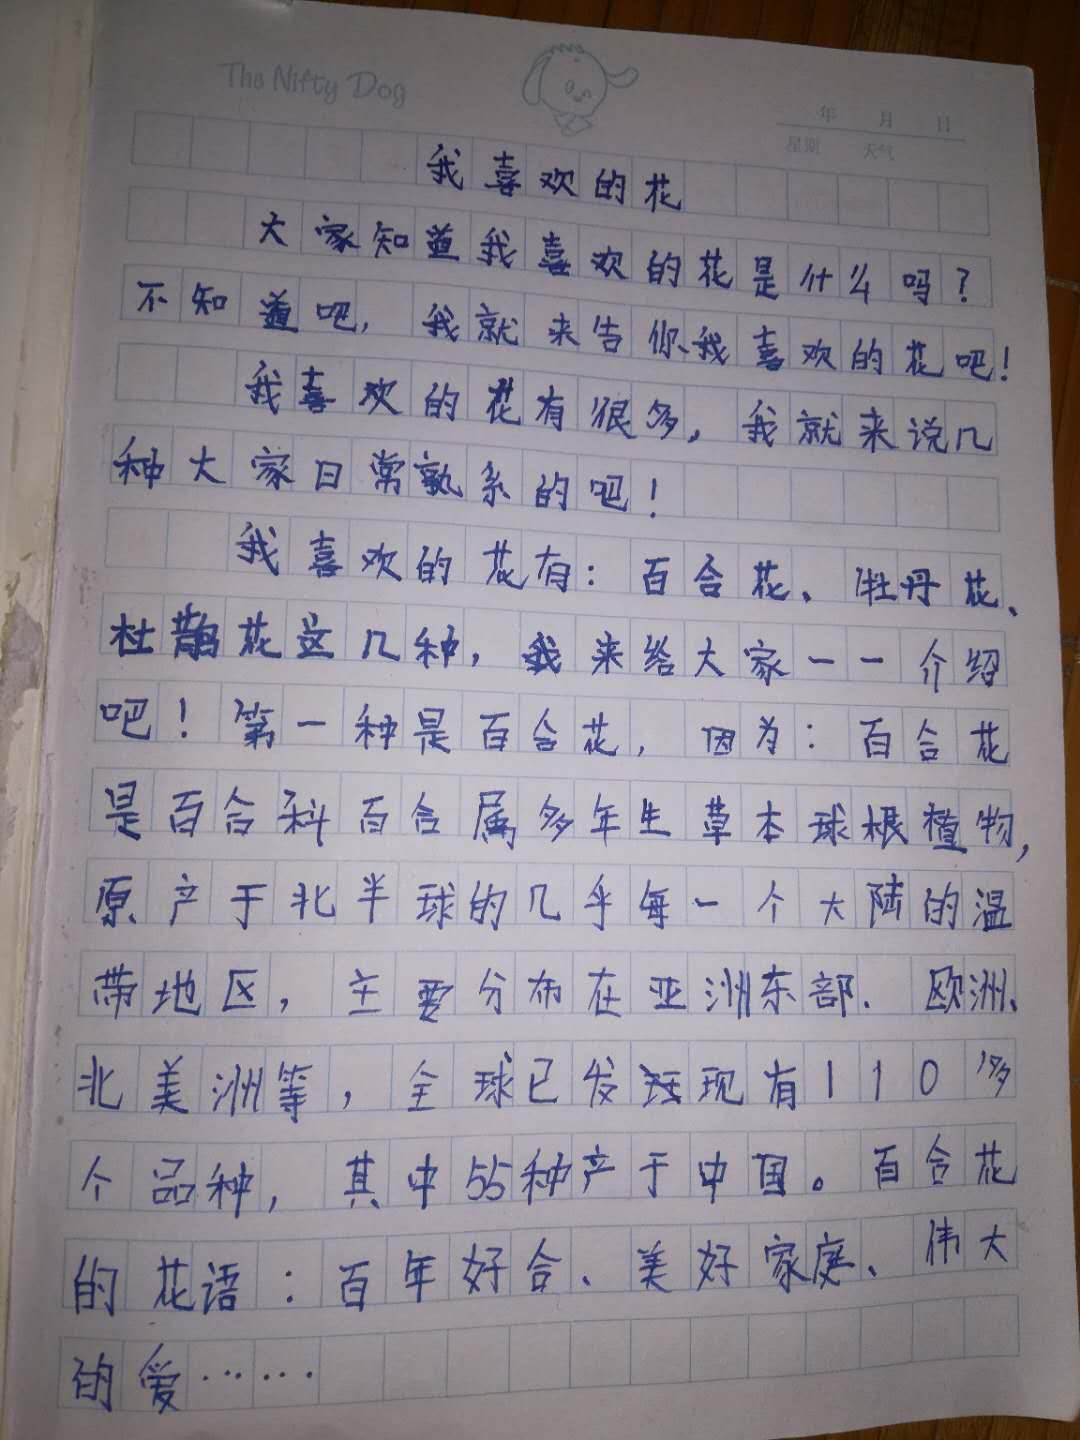 The Nifty Dog
年 月 日
星期 天气
我喜欢的花
大家知道我喜欢的花是什么吗?
不知道吧,我就来告你我喜欢的花吧!
我喜欢的花有很多,我就来说几
种大家日常孰系的吧!
我喜欢的花有:百合花、牡丹花、
杜鹃花这几种,我来给大家一一介绍
吧!第一种是百合花,因为:百合花
是百合科百合属多年生草本球根植物,
原产于北半球的几乎每一个大陆的温
带地区,主要分布在亚洲东部、欧洲、
北美洲等,全球已发现有110多
个品种,其中55种产于中国。百合花
的花语:百年好合、美好家庭、伟大
的爱……